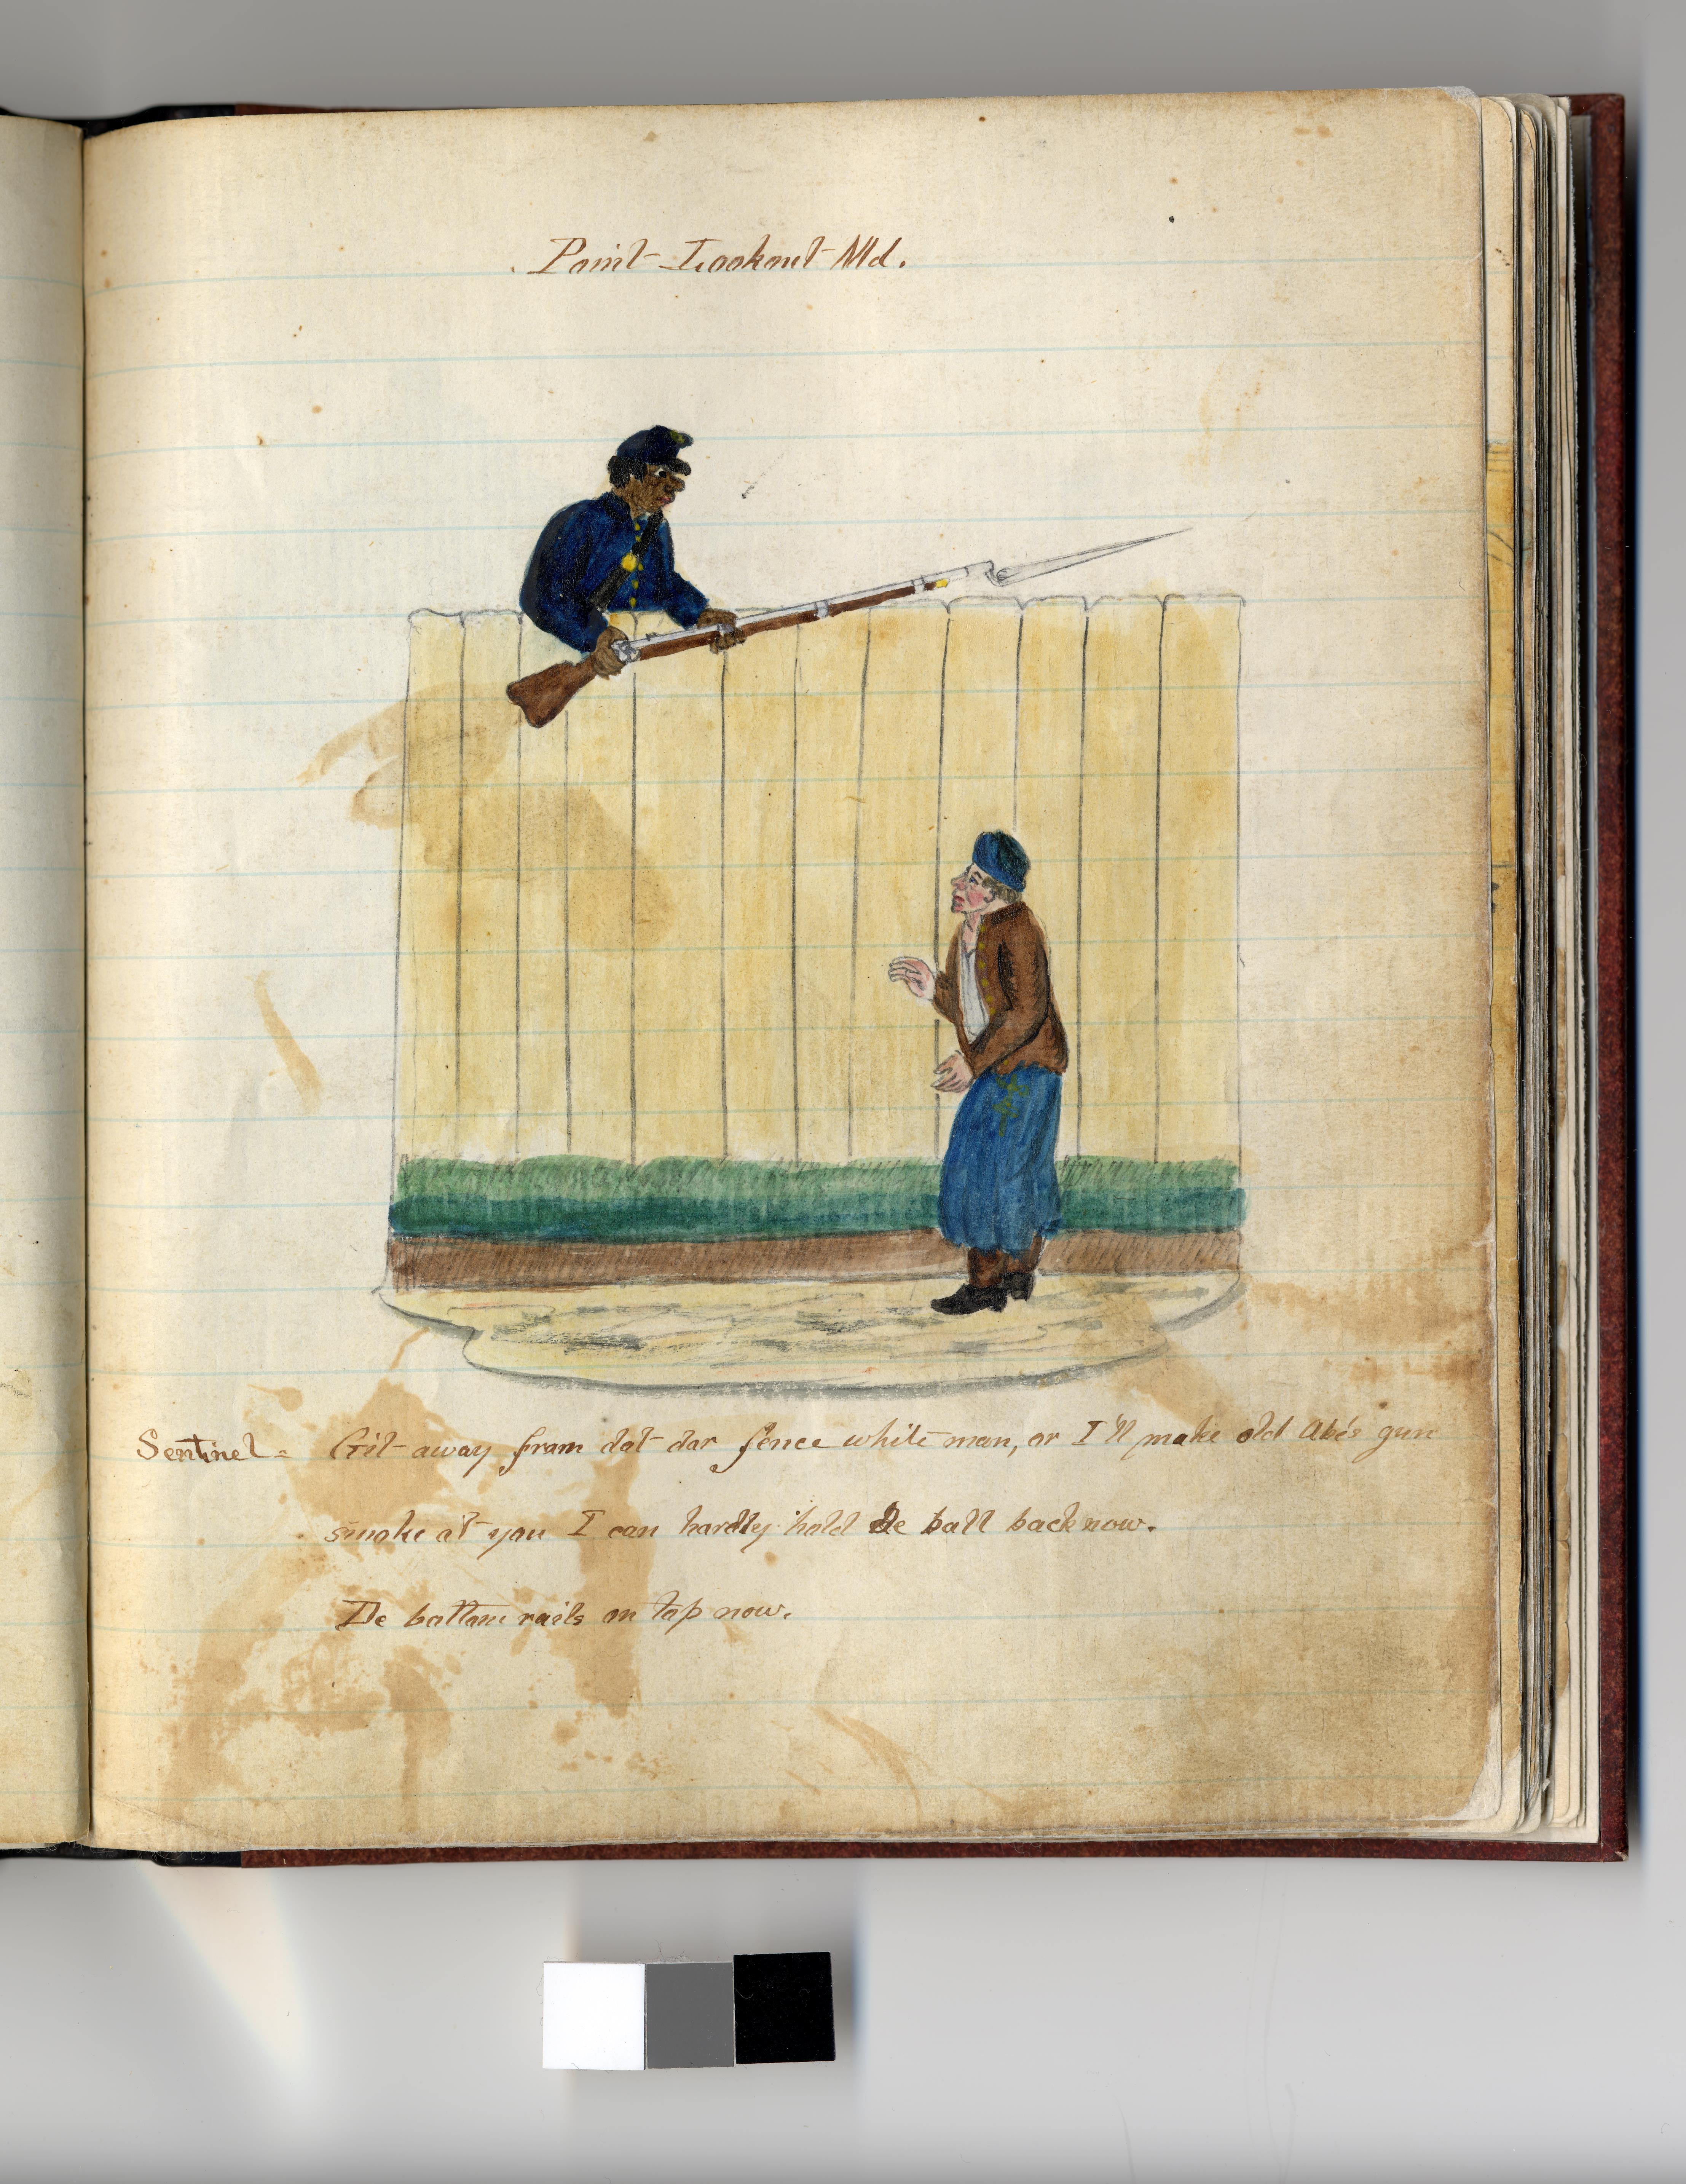 Point Lookout Md.
Sentinel = Git away from dat dar fence white man, or I'll make old Abe's gun
smoke at you I can hardly hold de ball back now.
De bottom rails on top now.